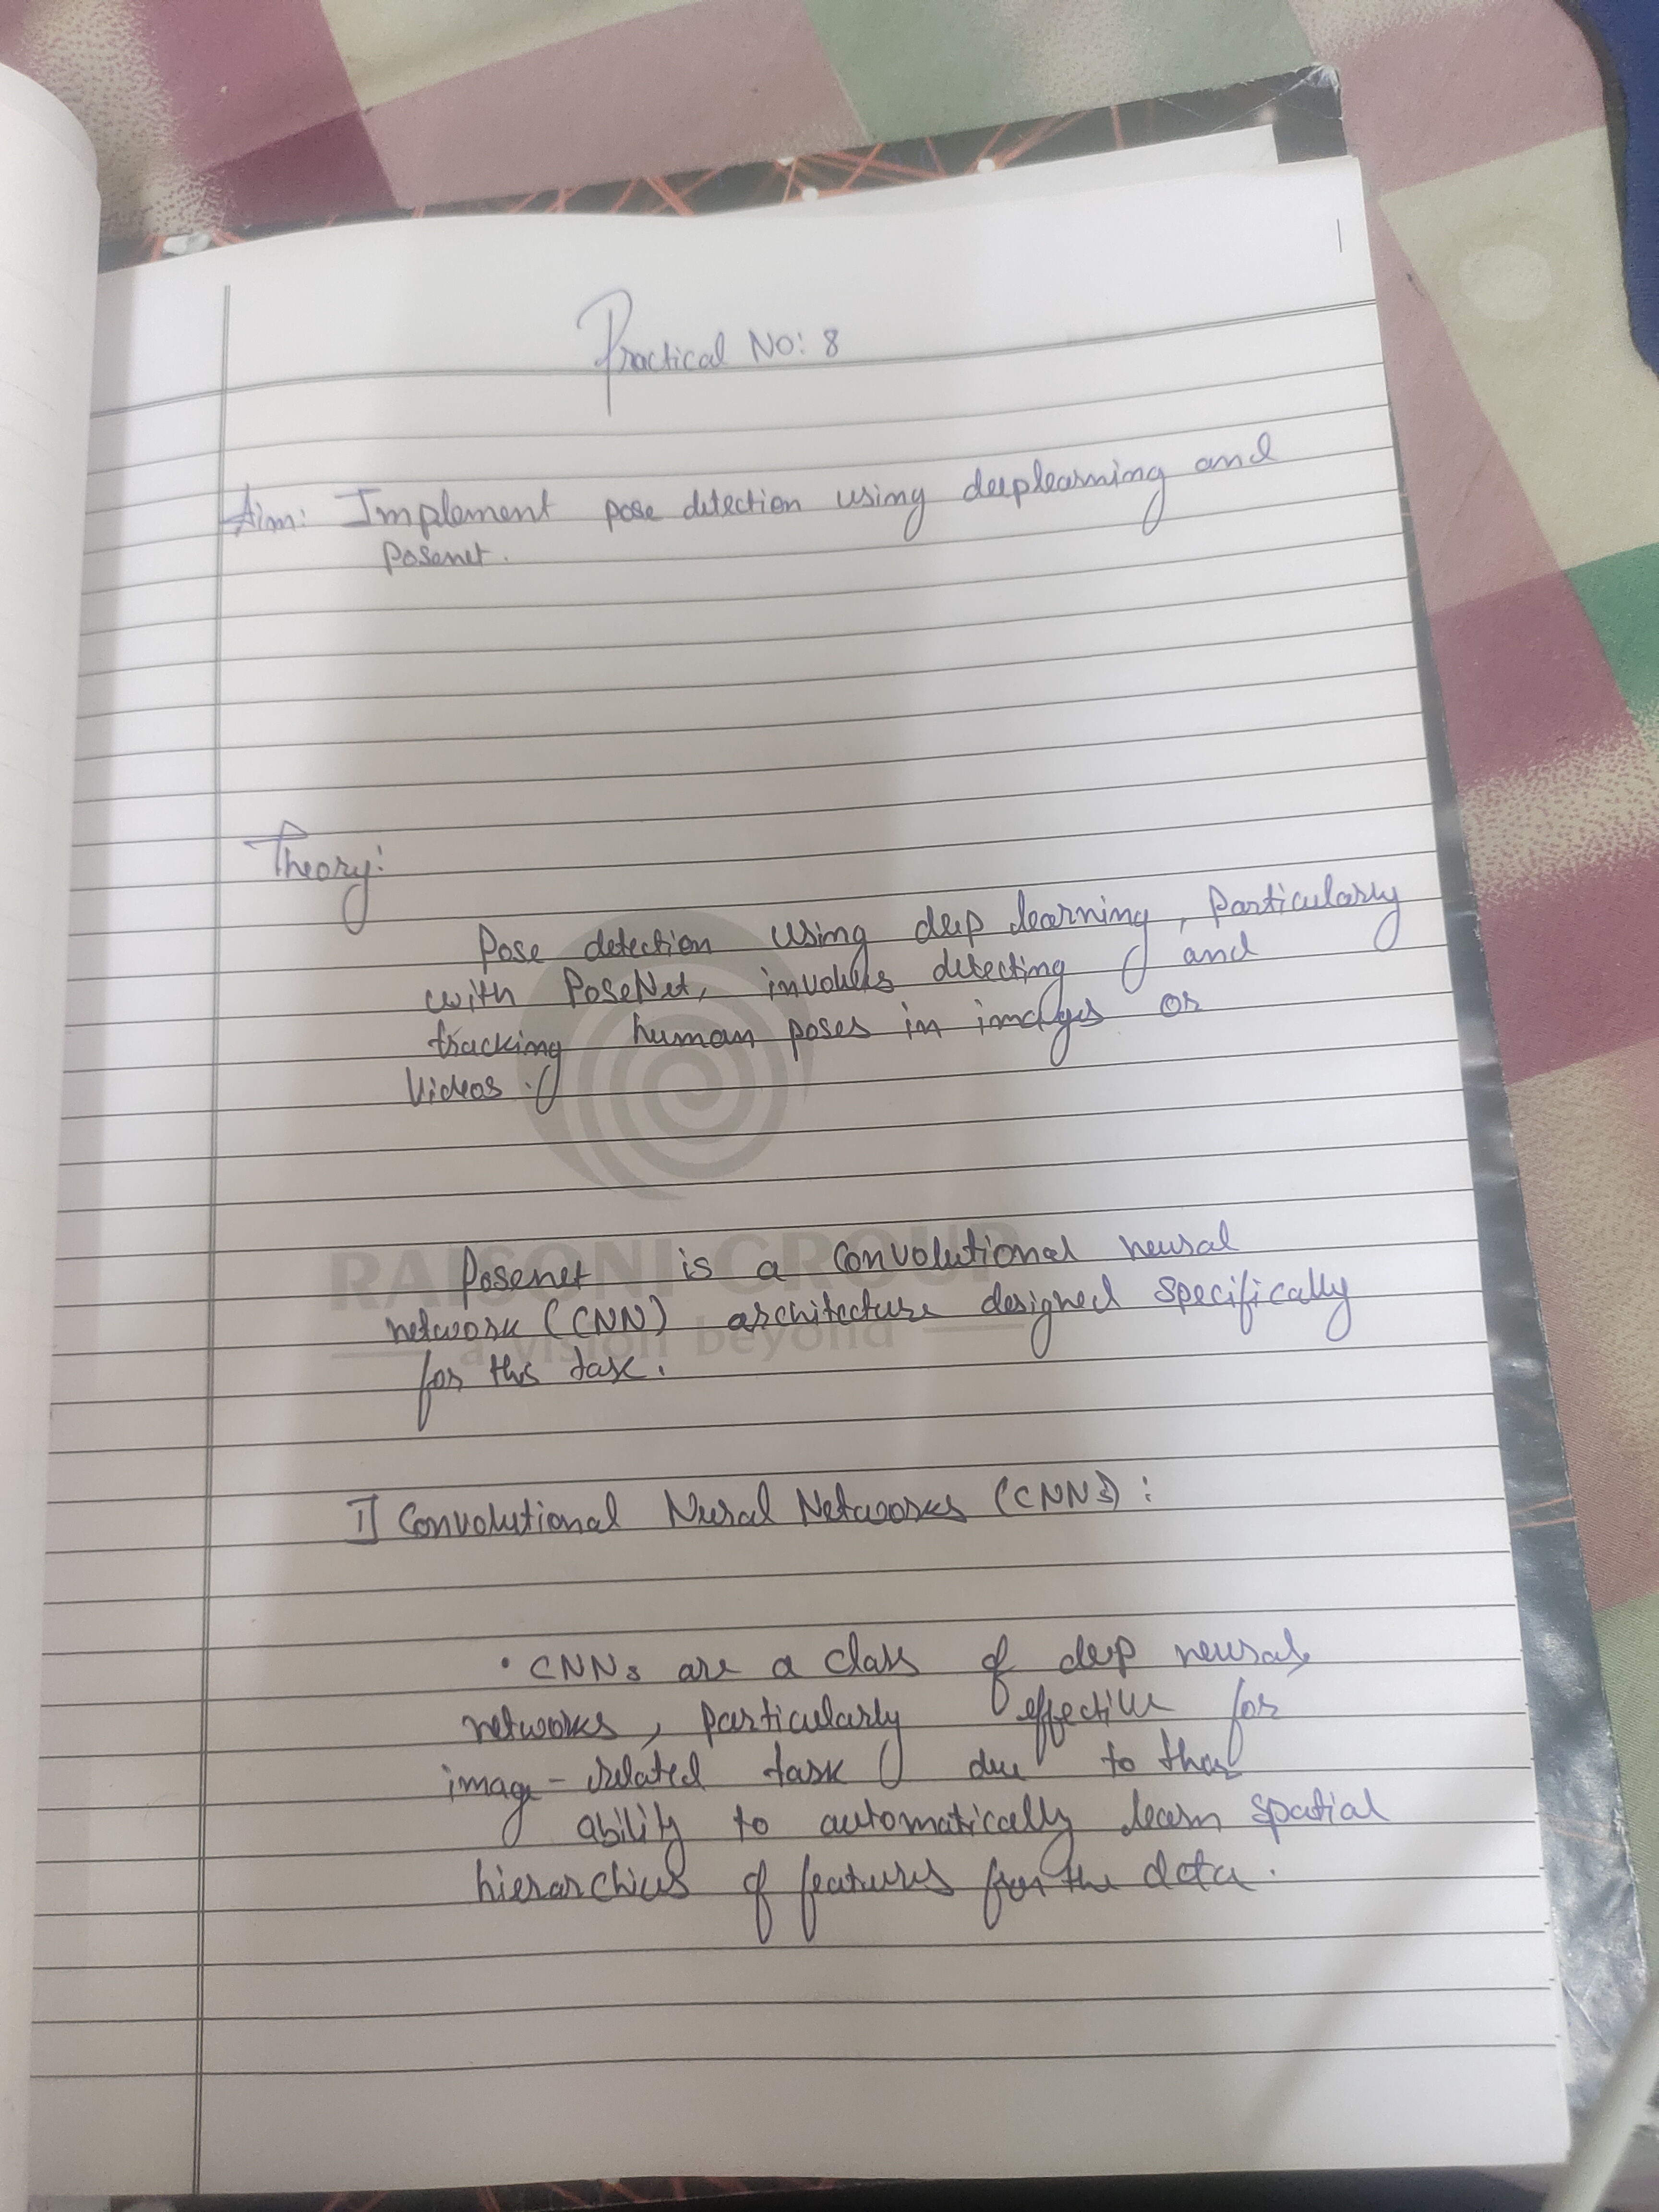 Practical No: 8
Aim: Implement pose detection using deeplearning and
Posenet.
Theory:
Pose detection using deep learning, Particularly
with PoseNet, involves detecting and
tracking human poses in images or
Videos.
RAISONI GROUP
a vision beyond
Posenet is a Convolutional neural
network (CNN) architecture designed specifically
for this task.
I] Convolutional Nural Networks (CNNs):
• CNNs are a class of deep neural
networks, particularly effective for
image-related task due to their
ability to automatically learn spatial
hierarchies of features from the data.